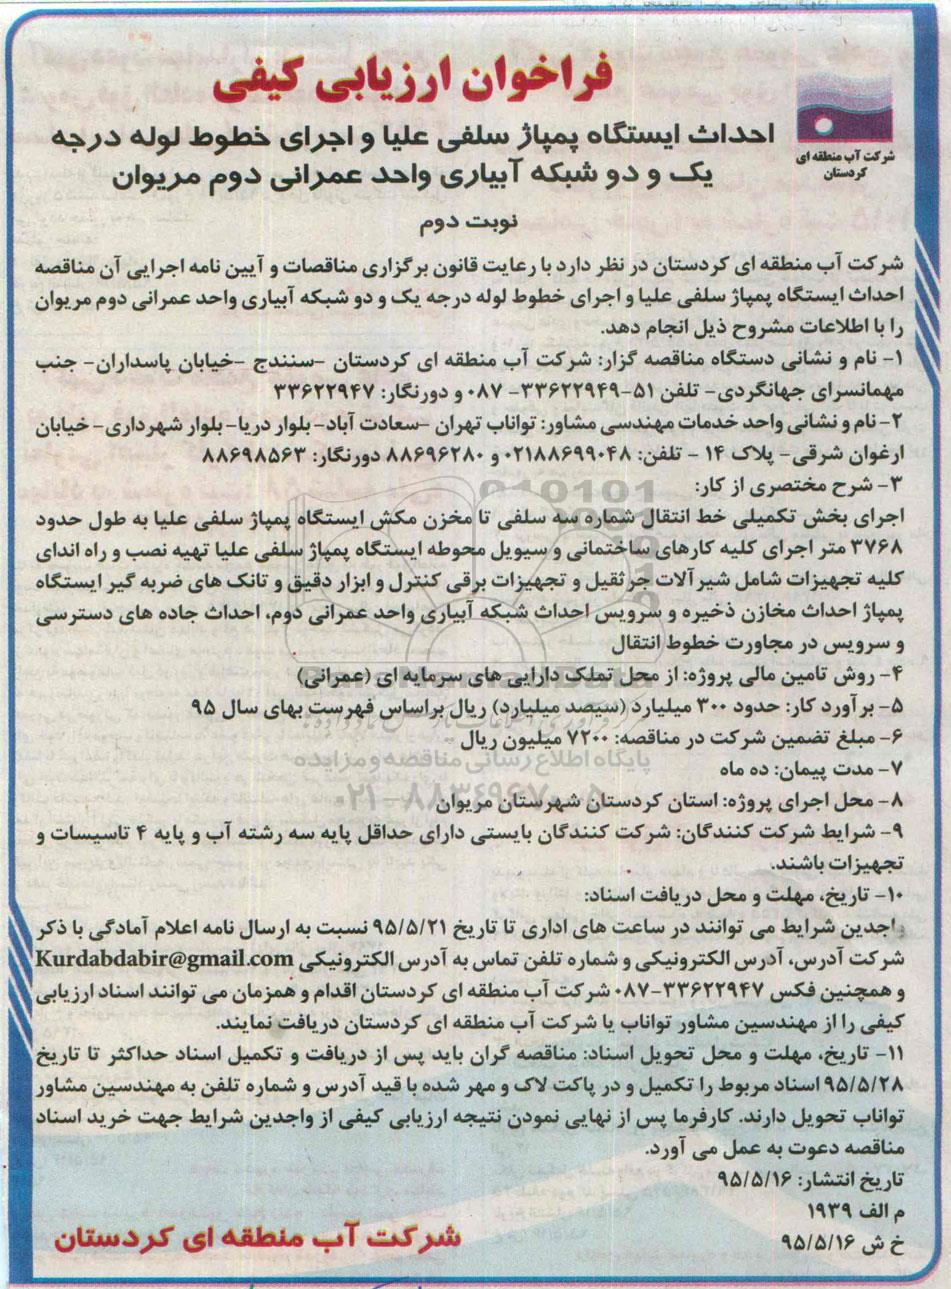 فراخوان ارزیابی کیفی
شرکت آب منطقه ای
کردستان
احداث ایستگاه پمپاژ سلفی علیا و اجرای خطوط لوله درجه
یک و دو شبکه آبیاری واحد عمرانی دوم مریوان
نوبت دوم
شرکت آب منطقه ای کردستان در نظر دارد با رعایت قانون برگزاری مناقصات و آیین نامه اجرایی آن مناقصه
احداث ایستگاه پمپاژ سلفی علیا و اجرای خطوط لوله درجه یک و دو شبکه آبیاری واحد عمرانی دوم مریوان
را با اطلاعات مشروح ذیل انجام دهد.
۱- نام و نشانی دستگاه مناقصه گزار: شرکت آب منطقه ای کردستان -سنندج -خیابان پاسداران- جنب
مهمانسرای جهانگردی- تلفن ۵۱-۳۳۶۲۲۹۴۹- ۰۸۷ و دورنگار: ۳۳۶۲۲۹۴۷
۲- نام و نشانی واحد خدمات مهندسی مشاور: تواناب تهران -سعادت آباد- بلوار دریا- بلوار شهرداری- خیابان
ارغوان شرقی- پلاک ۱۴ - تلفن: ۰۲۱۸۸۶۹۹۰۴۸ و ۸۸۶۹۶۲۸۰ دورنگار: ۸۸۶۹۸۵۶۳
۳- شرح مختصری از کار:
اجرای بخش تکمیلی خط انتقال شماره سه سلفی تا مخزن مکش ایستگاه پمپاژ سلفی علیا به طول حدود
۳۷۶۸ متر اجرای کلیه کارهای ساختمانی و سیویل محوطه ایستگاه پمپاژ سلفی علیا تهیه نصب و راه اندای
کلیه تجهیزات شامل شیرآلات جرثقیل و تجهیزات برقی کنترل و ابزار دقیق و تانک های ضربه گیر ایستگاه
پمپاژ احداث مخازن ذخیره و سرویس احداث شبکه آبیاری واحد عمرانی دوم، احداث جاده های دسترسی
و سرویس در مجاورت خطوط انتقال
۴- روش تامین مالی پروژه: از محل تملک دارایی های سرمایه ای (عمرانی)
۵- برآورد کار: حدود ۳۰۰ میلیارد (سیصد میلیارد) ریال براساس فهرست بهای سال ۹۵
۶- مبلغ تضمین شرکت در مناقصه: ۷۲۰۰ میلیون ریال
پایگاه اطلاع رسانی مناقصه و مزایده
۷- مدت پیمان: ده ماه
۸- محل اجرای پروژه: استان کردستان شهرستان مریوان
۹- شرایط شرکت کنندگان: شرکت کنندگان بایستی دارای حداقل پایه سه رشته آب و پایه ۴ تاسیسات و
تجهیزات باشند.
۱۰- تاریخ، مهلت و محل دریافت اسناد:
واجدین شرایط می توانند در ساعت های اداری تا تاریخ ۹۵/۵/۲۱ نسبت به ارسال نامه اعلام آمادگی با ذکر
شرکت آدرس، آدرس الکترونیکی و شماره تلفن تماس به آدرس الکترونیکی Kurdabdabir@gmail.com
و همچنین فکس ۳۳۶۲۲۹۴۷-۰۸۷ شرکت آب منطقه ای کردستان اقدام و همزمان می توانند اسناد ارزیابی
کیفی را از مهندسین مشاور تواناب یا شرکت آب منطقه ای کردستان دریافت نمایند.
۱۱- تاریخ، مهلت و محل تحویل اسناد: مناقصه گران باید پس از دریافت و تکمیل اسناد حداکثر تا تاریخ
۹۵/۵/۲۸ اسناد مربوط را تکمیل و در پاکت لاک و مهر شده با قید آدرس و شماره تلفن به مهندسین مشاور
تواناب تحویل دارند. کارفرما پس از نهایی نمودن نتیجه ارزیابی کیفی از واجدین شرایط جهت خرید اسناد
مناقصه دعوت به عمل می آورد.
تاریخ انتشار: ۹۵/۵/۱۶
م الف ۱۹۳۹
خ ش ۹۵/۵/۱۶
شرکت آب منطقه ای کردستان